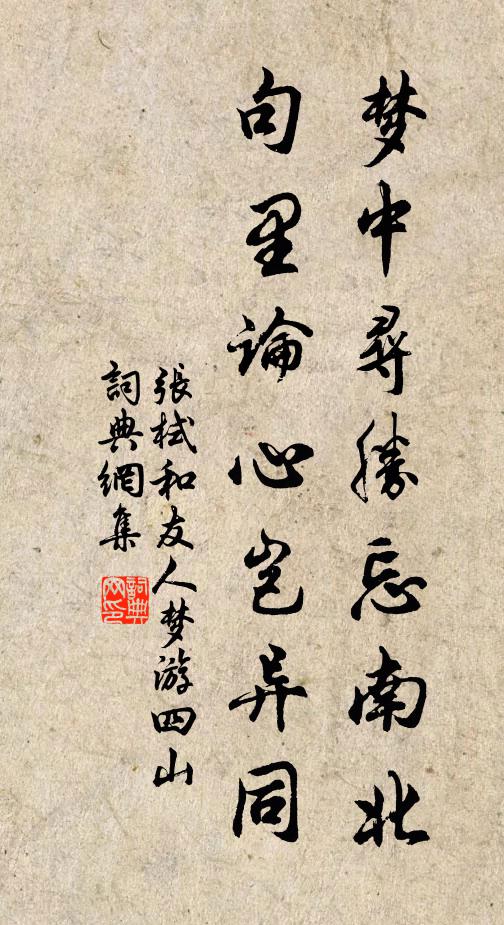 梦中尋勝忘南北
句里論心岂异同
張栻和友人梦游四山
詞典網集
詞典網印